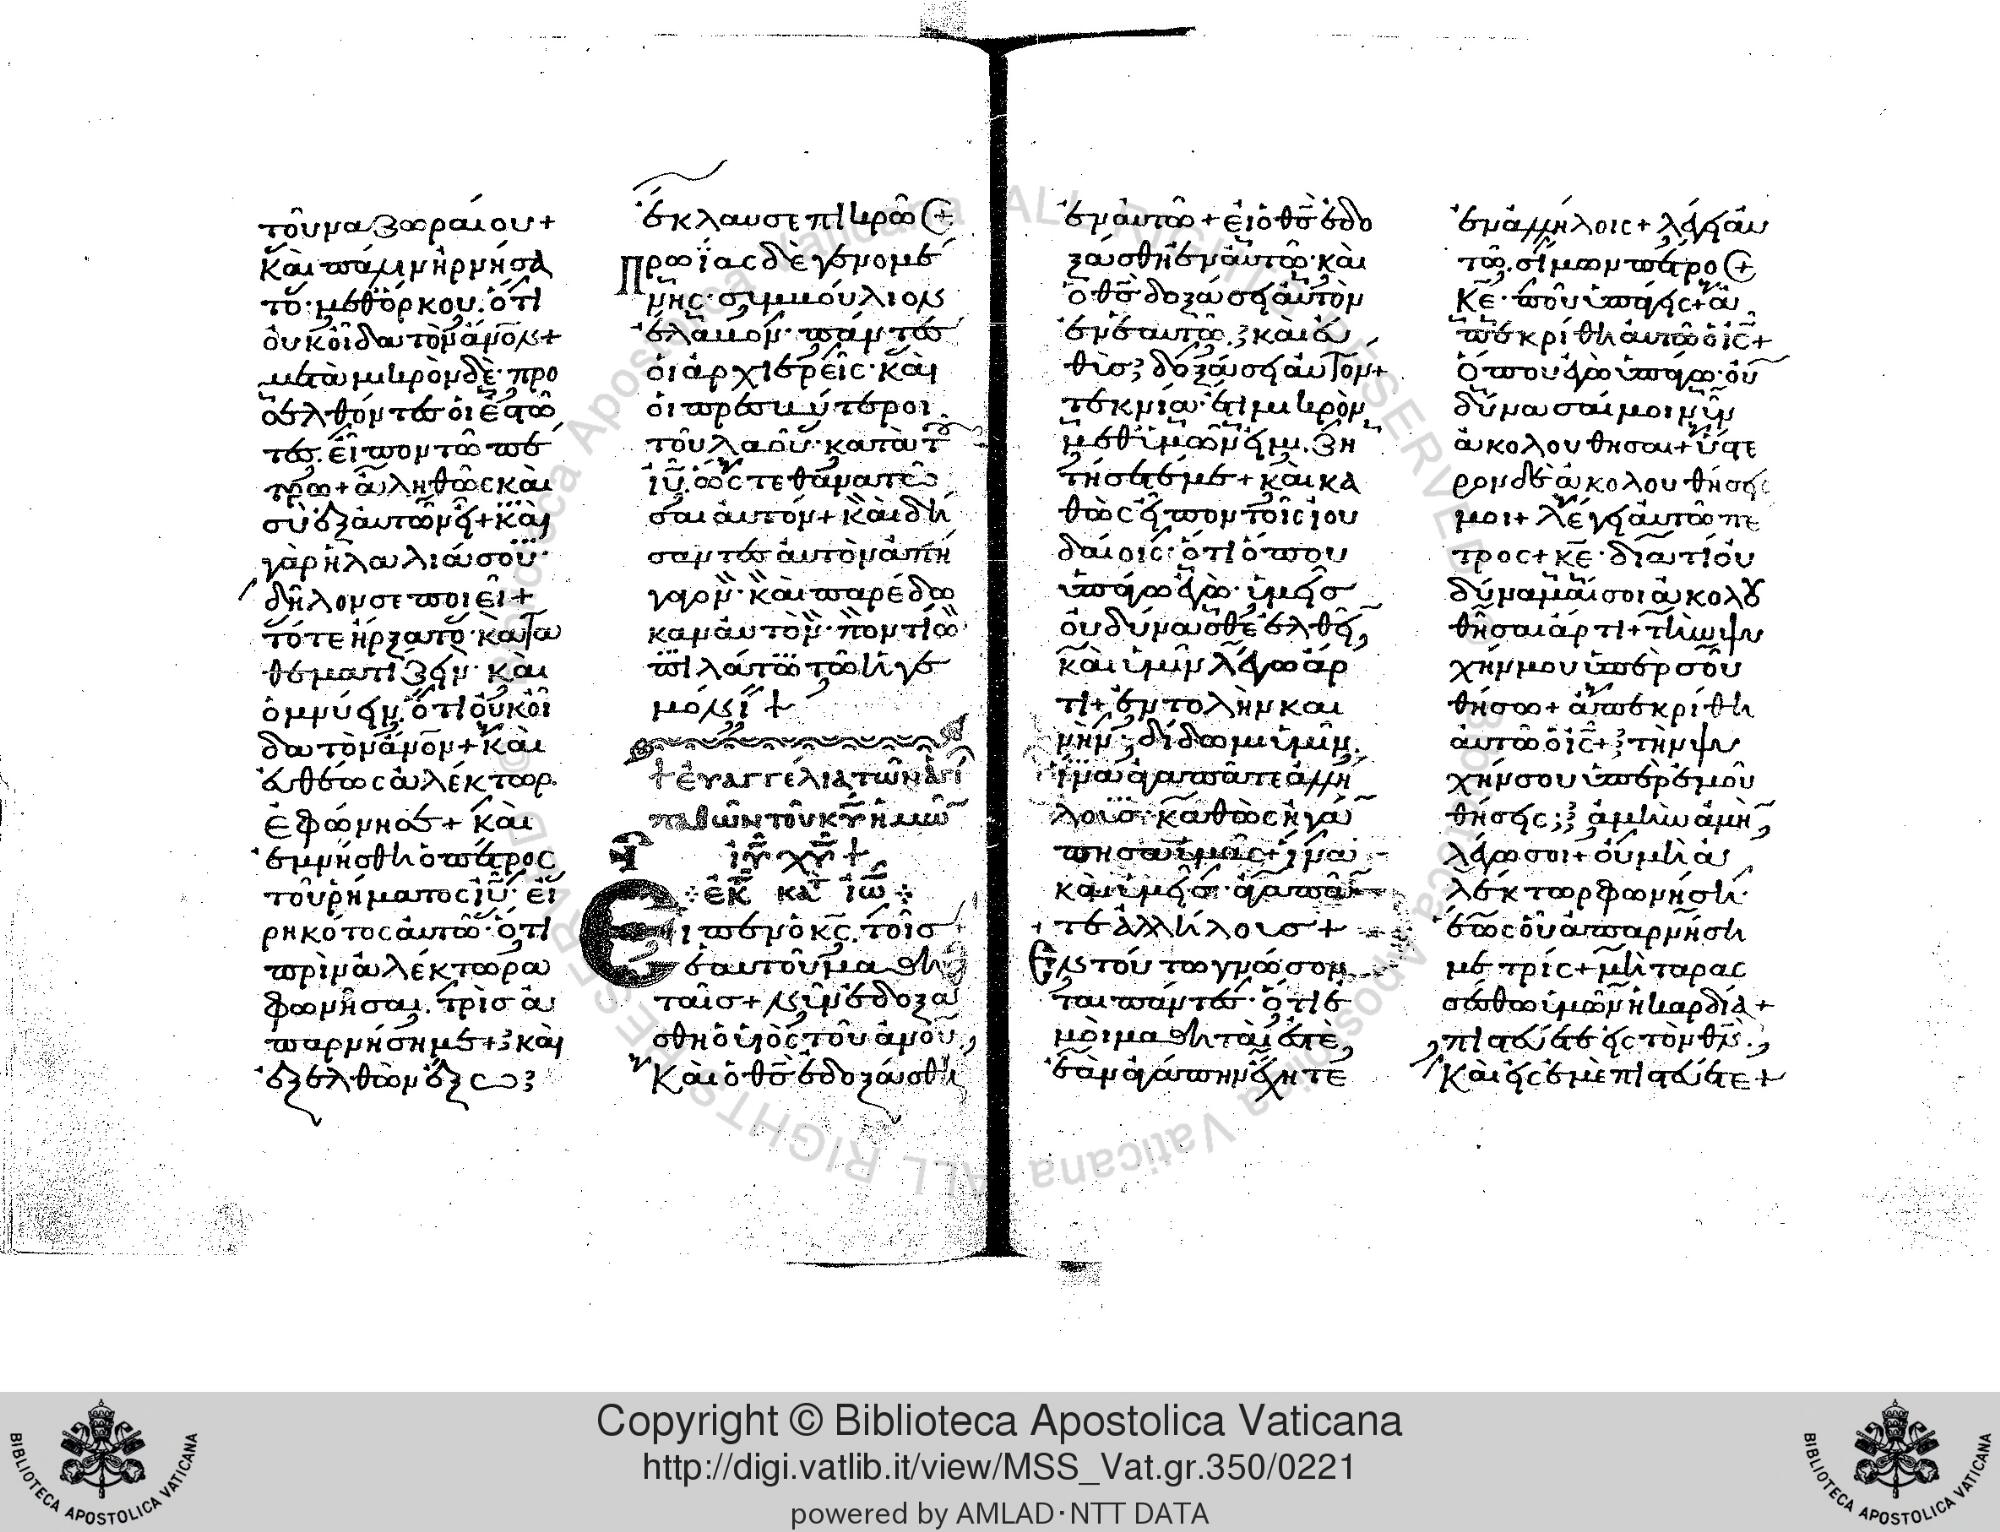 τοῦ ναζωραίου+
καὶ πάλιν ἠρνήσα
το· μεθ ὅρκου. ὅτι
οὐκ οἶδα τὸν ἄνον+
μετὰ μικρὸν δὲ· προ
σελθόντες οἱ ἑστῶ
τες. εἶπον τῶ πέ
τρω+ ἀληθῶς καὶ
σὺ ἐξ αὐτῶν εἶ+ καὶ
γὰρ ἡ λαλιά σου·
δῆλόν σε ποιεῖ+
τότε ἤρξατο· κατα
θεματίζειν· καὶ
ὀμνύειν. ὅτι οὐκ οἶ
δα τὸν ἄνον+ καὶ
εὐθέως ἀλέκτωρ.
ἐφώνησε+ καὶ
ἐμνήσθη ὁ πέτρος
τοῦ ῥήματος ιυ· εἰ
ρηκότος αὐτῶ· ὅτι
πρὶν ἀλέκτωρα
φωνῆσαι. τρὶς ἀ
παρνήση με+ καὶ
ἐξελθὼν ἔξω
ἔκλαυσε πικρῶ
Πρωΐας δὲ γενομέ
νης· συμβούλιον
ἔλαβον· πάντες
οἱ ἀρχιερεῖς· καὶ
οἱ πρεσβύτεροι
τοῦ λαοῦ· κατὰ τ
ιυ. ὥστε θανατῶ
σαι αὐτόν+ καὶ δή
σαντες αὐτὸν ἀπή
γαγον· καὶ παρέδω
καν αὐτὸν· ποντίω
πιλάτω τῶ ἡγε
μόνι+
+ εὐαγγέλια τῶν ἁγί
παθῶν τοῦ κυ ἡμῶ
ιυ χυ+
ἐκ κατ ιω
Εἶπεν ὁ κς. τοῖς
ἑαυτοῦ μαθη
ταῖς+ νῦν ἐδοξά
σθη ὁ υἱὸς τοῦ ανου,
Καὶ ὁ θς ἐδοξάσθη
ἐν αὐτῶ+ εἰ ὁ θς ἐδο
ξάσθη ἐν αὐτῶ· καὶ
ὁ θς δοξάσει αὐτὸν
ἐν ἑαυτῶ. καὶ εὐ
θὺς δοξάσει αὐτόν+
τεκνία· ἔτι μικρὸν
μεθ ὑμῶν εἰμι. ζη
τήσετέ με+ καὶ κα
θὼς εἶπον τοῖς ἰου
δαίοις· ὅτι ὅπου
ὑπάγω ἐγὼ· ὑμεῖς
οὐ δύνασθε ἐλθεῖ,
καὶ ὑμῖν λέγω ἄρ
τι+ ἐντολὴν και
νὴν, δίδωμι ὑμῖν.
ἵνα ἀγαπᾶτε ἀλλή
λους· καθὼς ἠγά
πησα ὑμᾶς+ ἵνα
καὶ ὑμεῖς· ἀγαπᾶ
τε ἀλλήλους+
Ἐν τούτω γνώσον
ται πάντες· ὅτι ἐ
μοὶ μαθηταί ἐστε,
ἐὰν ἀγάπην ἔχητε
ἐν ἀλλήλοις+ λέγει αὐ
τῶ. σίμων πέτρο
Κε· ποῦ ὑπάγεις+ ἀ
πεκρίθη αὐτῶ ὁ ις+
Ὅπου ἐγὼ ὑπάγω· οὐ
δύνασαί μοι νῦν
ἀκολουθῆσαι+ ὕστε
ρον δὲ ἀκολουθήσεις
μοι+ λέγει αὐτῶ πέ
τρος+ κε· διατί οὐ
δύναμαί σοι ἀκολου
θῆσαι ἄρτι+ τὴν ψυ
χήν μου ὑπὲρ σοῦ
θήσω+ ἀπεκρίθη
αὐτῶ ὁ ις+ τὴν ψυ
χήν σου ὑπὲρ ἐμοῦ
θήσεις; ἀμὴν ἀμὴ,
λέγω σοι+ οὐ μὴ ἀ
λέκτωρ φωνήση·
ἕως οὗ ἀπαρνήση
με τρίς+ μὴ ταρας
σέσθω ὑμῶν ἡ καρδία+
πιστεύετε εἰς τὸν θν.,
Καὶ εἰς ἐμὲ πιστεύετε+
Copyright © Biblioteca Apostolica Vaticana
http://digi.vatlib.it/view/MSS_Vat.gr.350/0221
powered by AMLAD·NTT DATA
BIBLIOTECA APOSTOLICA VATICANA
BIBLIOTECA APOSTOLICA VATICANA